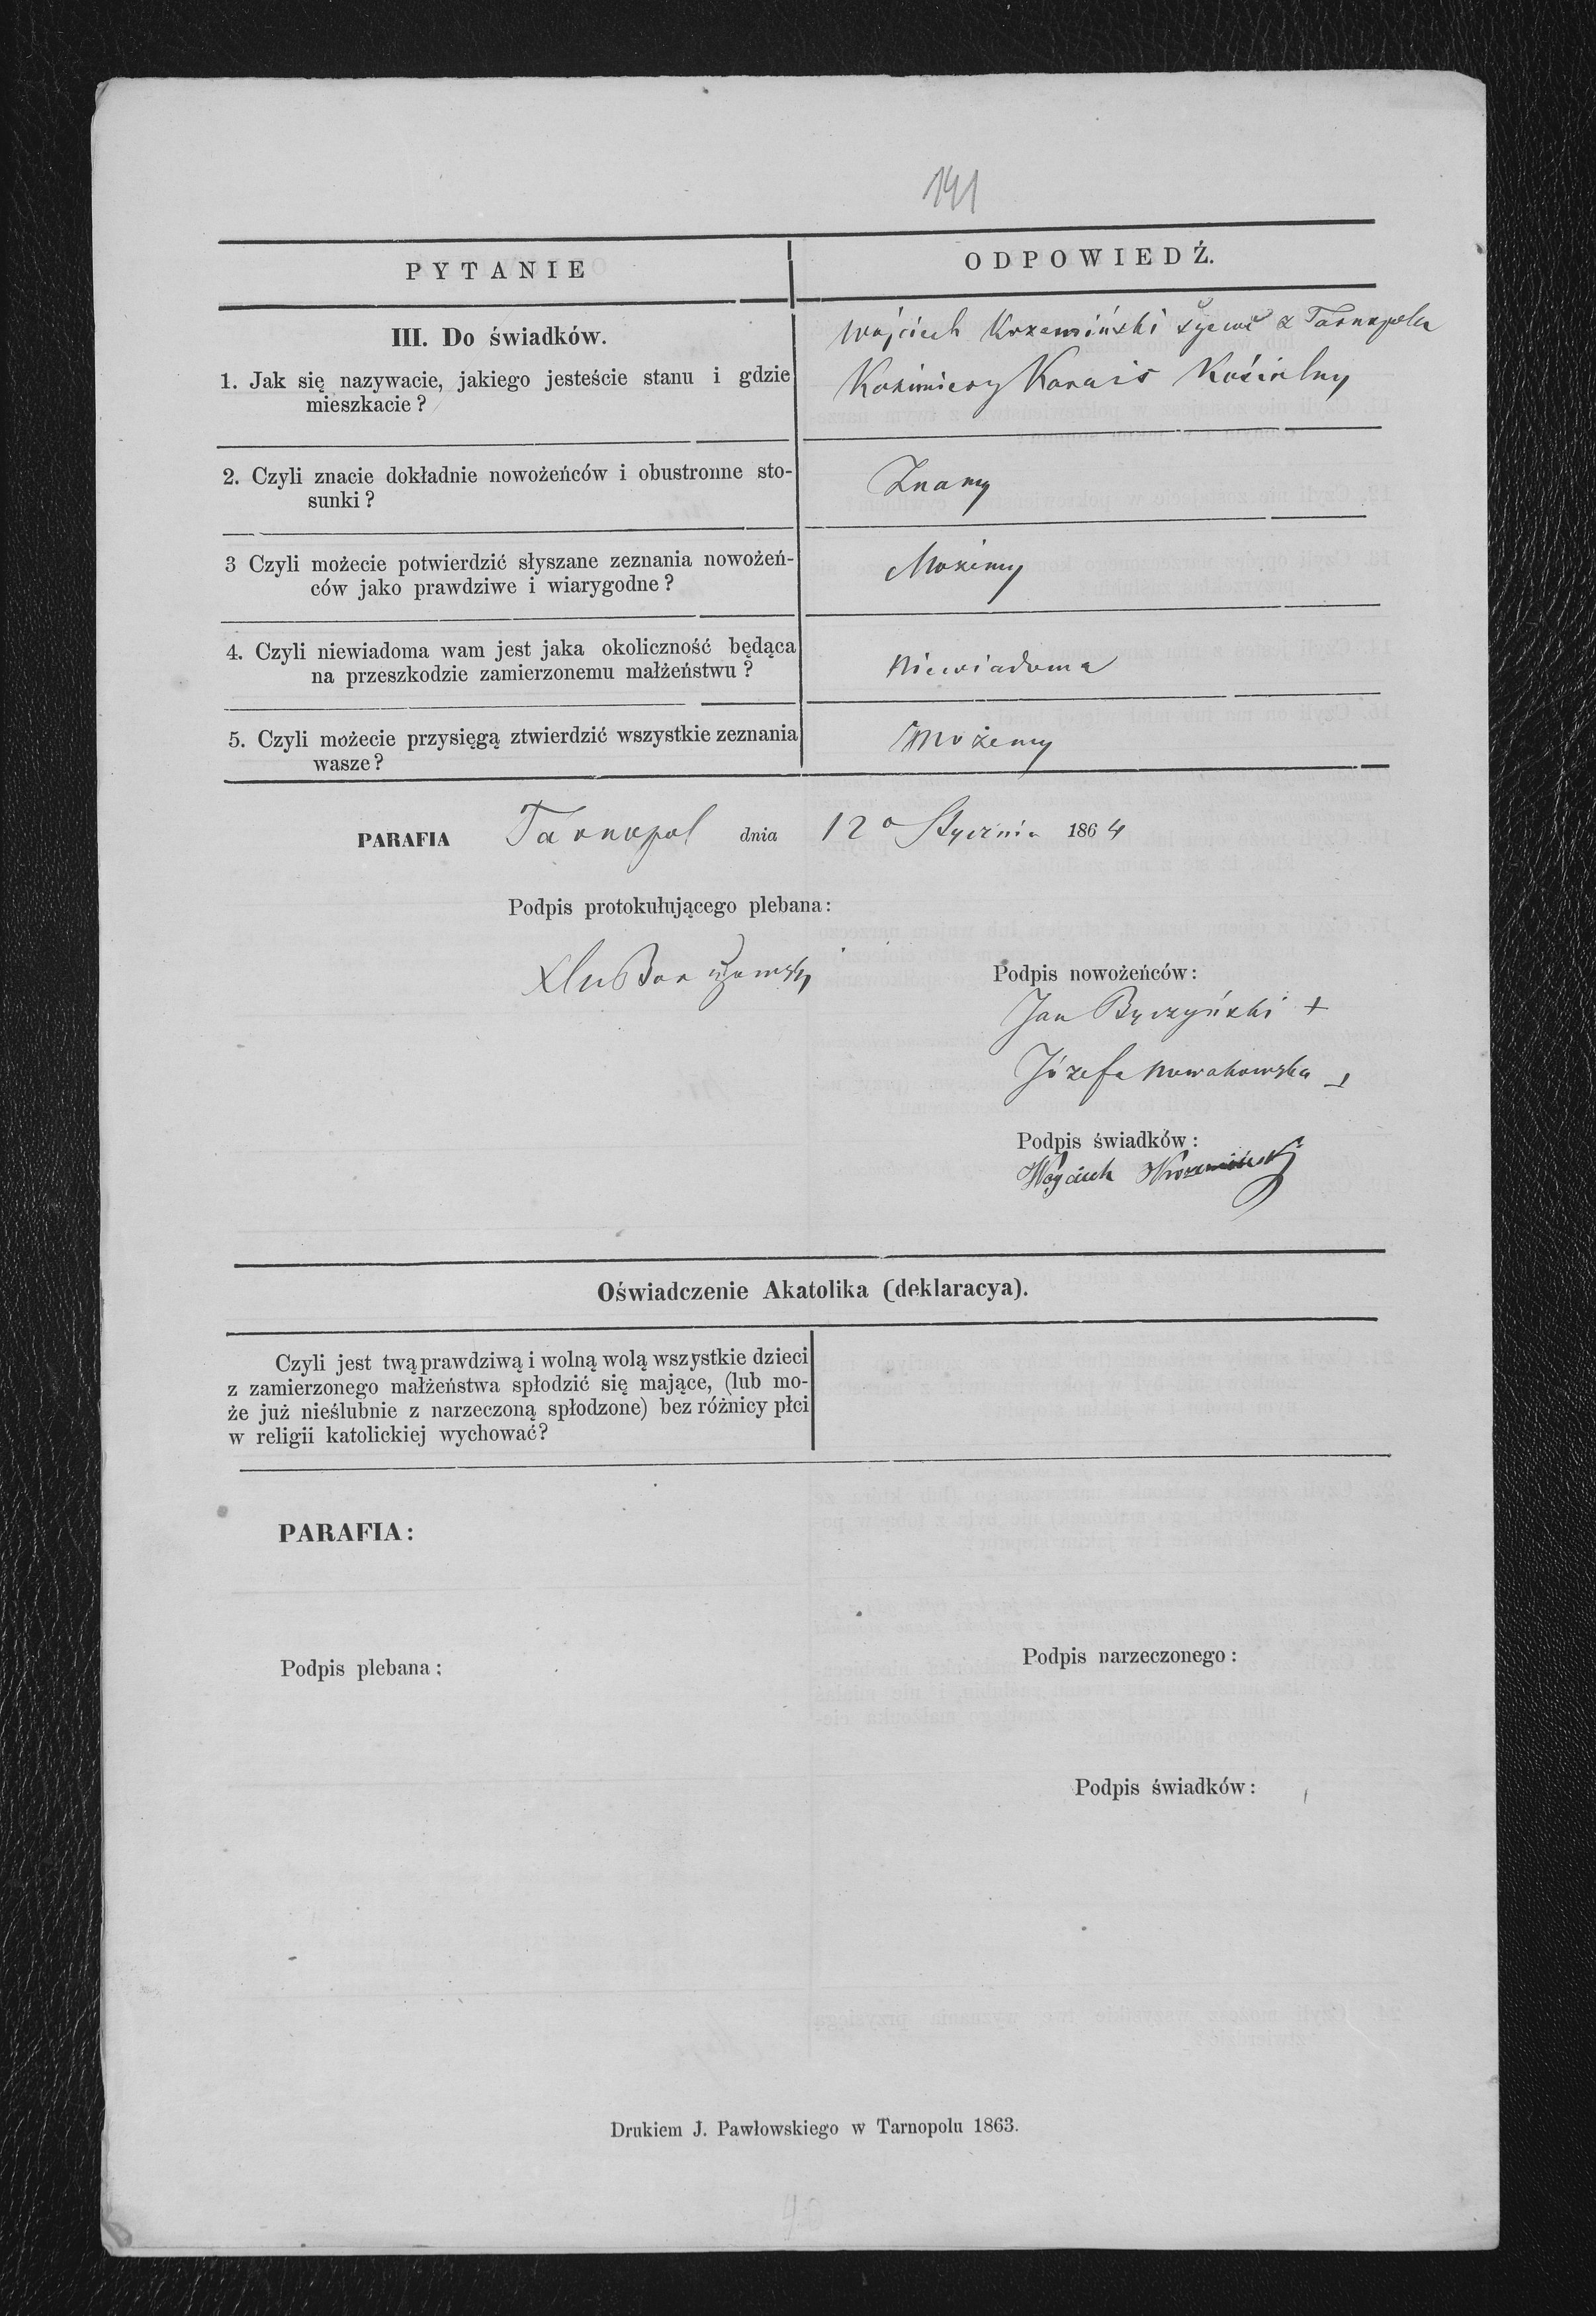 141
PYTANIE
ODPOWIEDŹ.
III. Do świadków.
1. Jak się nazywacie, jakiego jesteście stanu i gdzie
mieszkacie?
Wojciech Krzemiński szewc z Tarnopola
Kazimierz Karais Kościelny
2. Czyli znacie dokładnie nowożeńców i obustronne sto-
sunki?
Znamy
3 Czyli możecie potwierdzić słyszane zeznania nowożeń-
ców jako prawdziwe i wiarygodne?
Możemy
4. Czyli niewiadoma wam jest jaka okoliczność będąca
na przeszkodzie zamierzonemu małżeństwu?
Niewiadoma
5. Czyli możecie przysięgą ztwierdzić wszystkie zeznania
wasze?
Możemy
PARAFIA Tarnopol dnia 12o Stycznia 1864
Podpis protokułującego plebana:
Podpis nowożeńców:
Jan Byczyński +
Józefa Nowakowska +
Podpis świadków:
Wojciech Krzemiński
Oświadczenie Akatolika (deklaracya).
Czyli jest twą prawdziwą i wolną wolą wszystkie dzieci
z zamierzonego małżeństwa spłodzić się mające, (lub mo-
że już nieślubnie z narzeczoną spłodzone) bez różnicy płci
w religii katolickiej wychować?
PARAFIA:
Podpis plebana:
Podpis narzeczonego:
Podpis świadków:
Drukiem J. Pawłowskiego w Tarnopolu 1863.